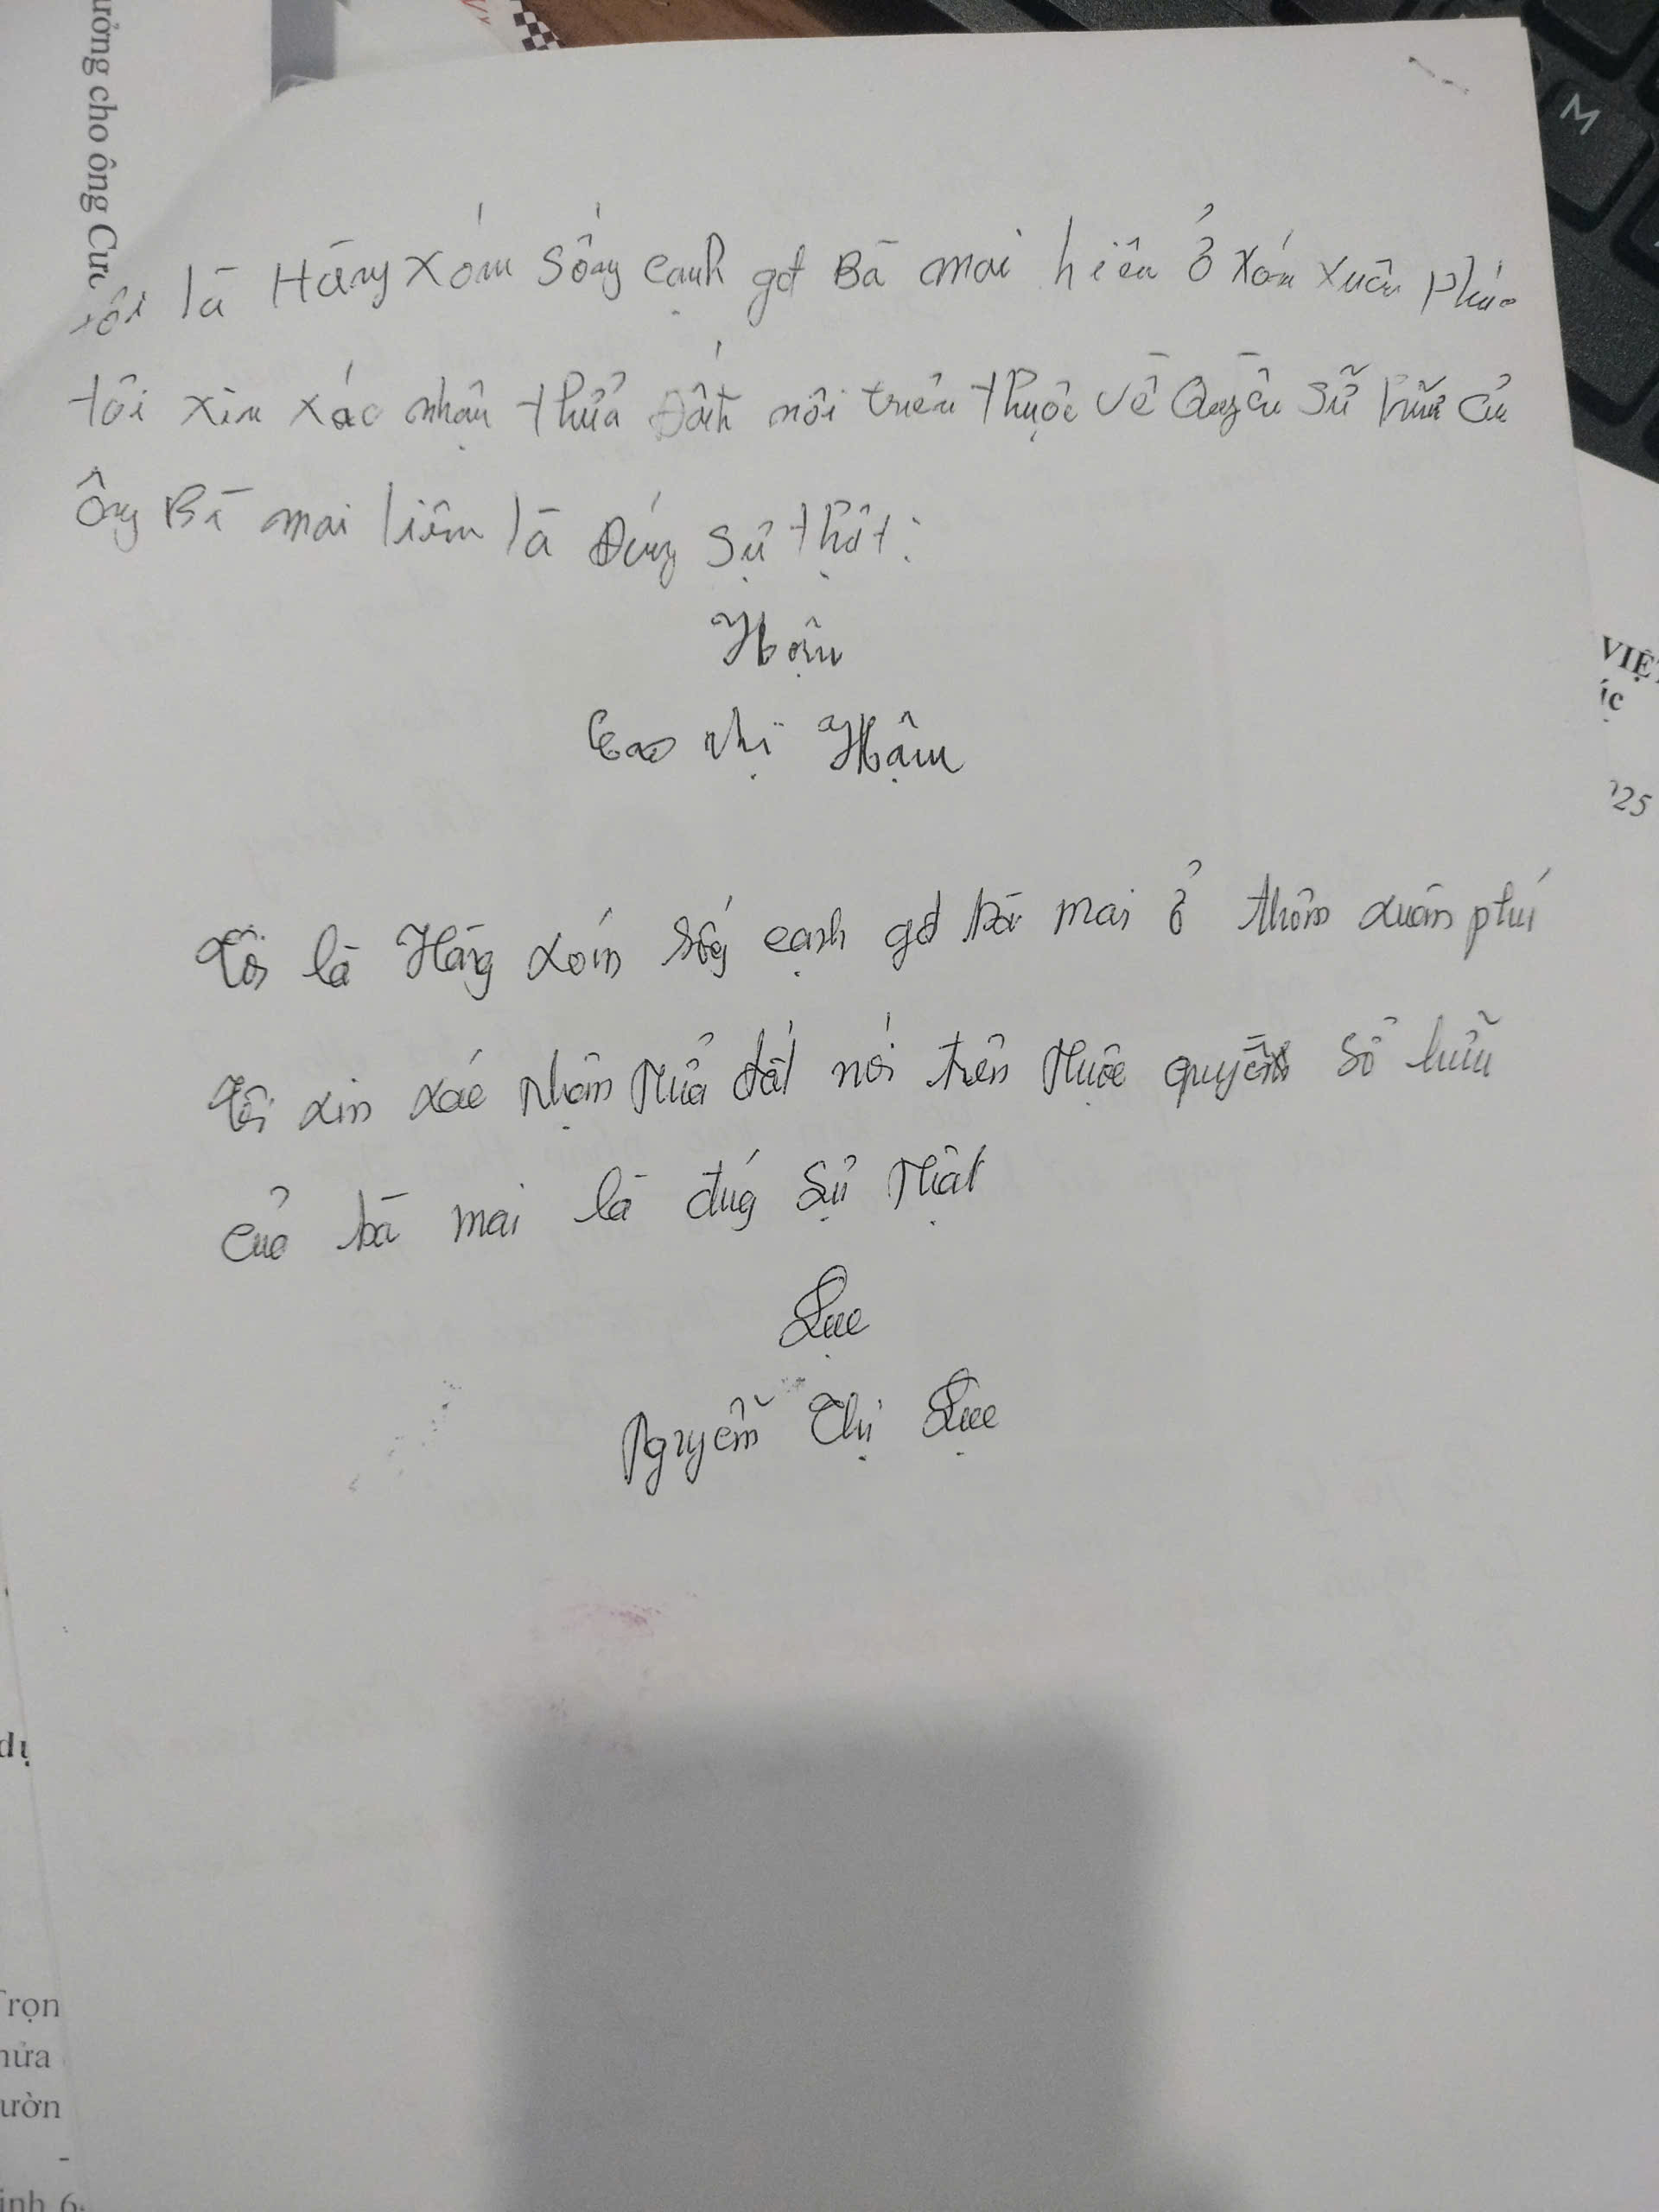 ưởng cho ông Cươ
tôi là Hàng xóm sống cạnh gđ Bà mai hiên ở xóm xuân phú
tôi xin xác nhận thửa đất nói trên thuộc về Quyền sỡ hữu củ
Ông Bà mai liêm là đúng sự thật:
Hậu
Cao thị Hậu
Tôi là Hàng xóm sống cạnh gđ bà mai ở thôn xuân phú
Tôi xin xác nhận thửa đất nói trên thuộc quyền sở hữu
của bà mai là đúng sự thật
Lục
Nguyễn Thị Lục
M
VIỆT
úc
025
dị
Trọn
hửa
ườn
-
inh 6.